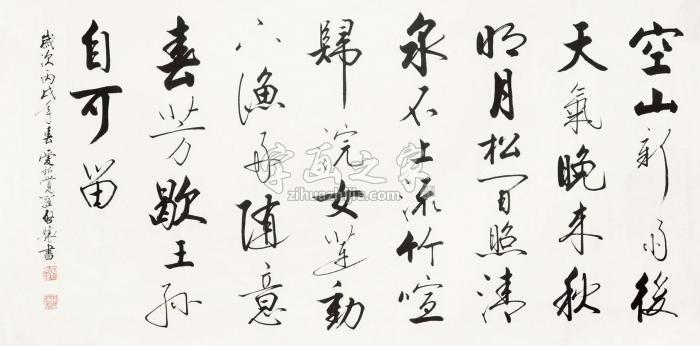 空山新雨後
天氣晚来秋
明月松间照清
泉石上流竹喧
歸浣女莲動
下漁舟随意
春芳歇王孙
自可留
歲次丙戌年春愛新覺羅書
字画之家
zihuazhijia.com